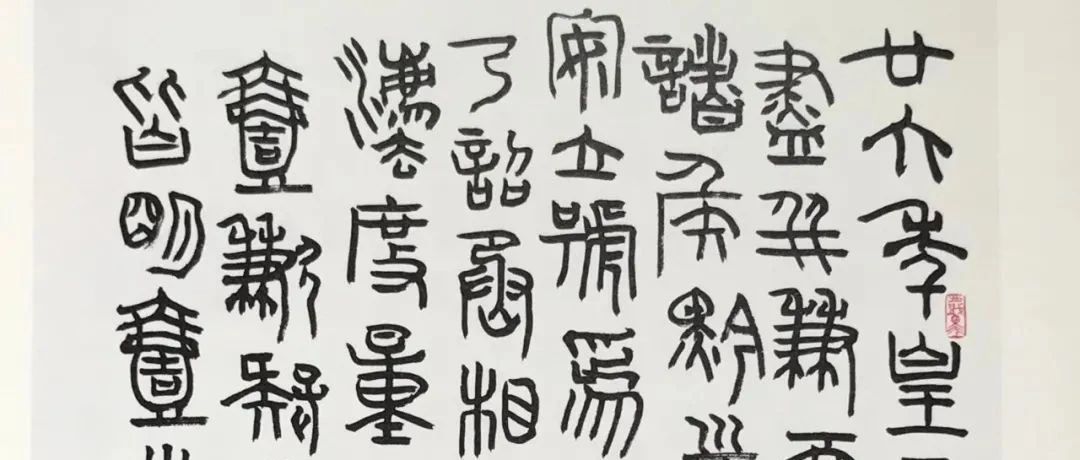 廿六年皇
盡并兼
諸侯黔
安立號爲
乃詔丞相
灋度量
壹歉疑
皆明壹